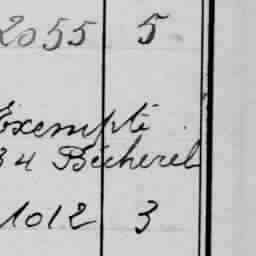 2055 5
Exempté
34 Bécherel
1012 3